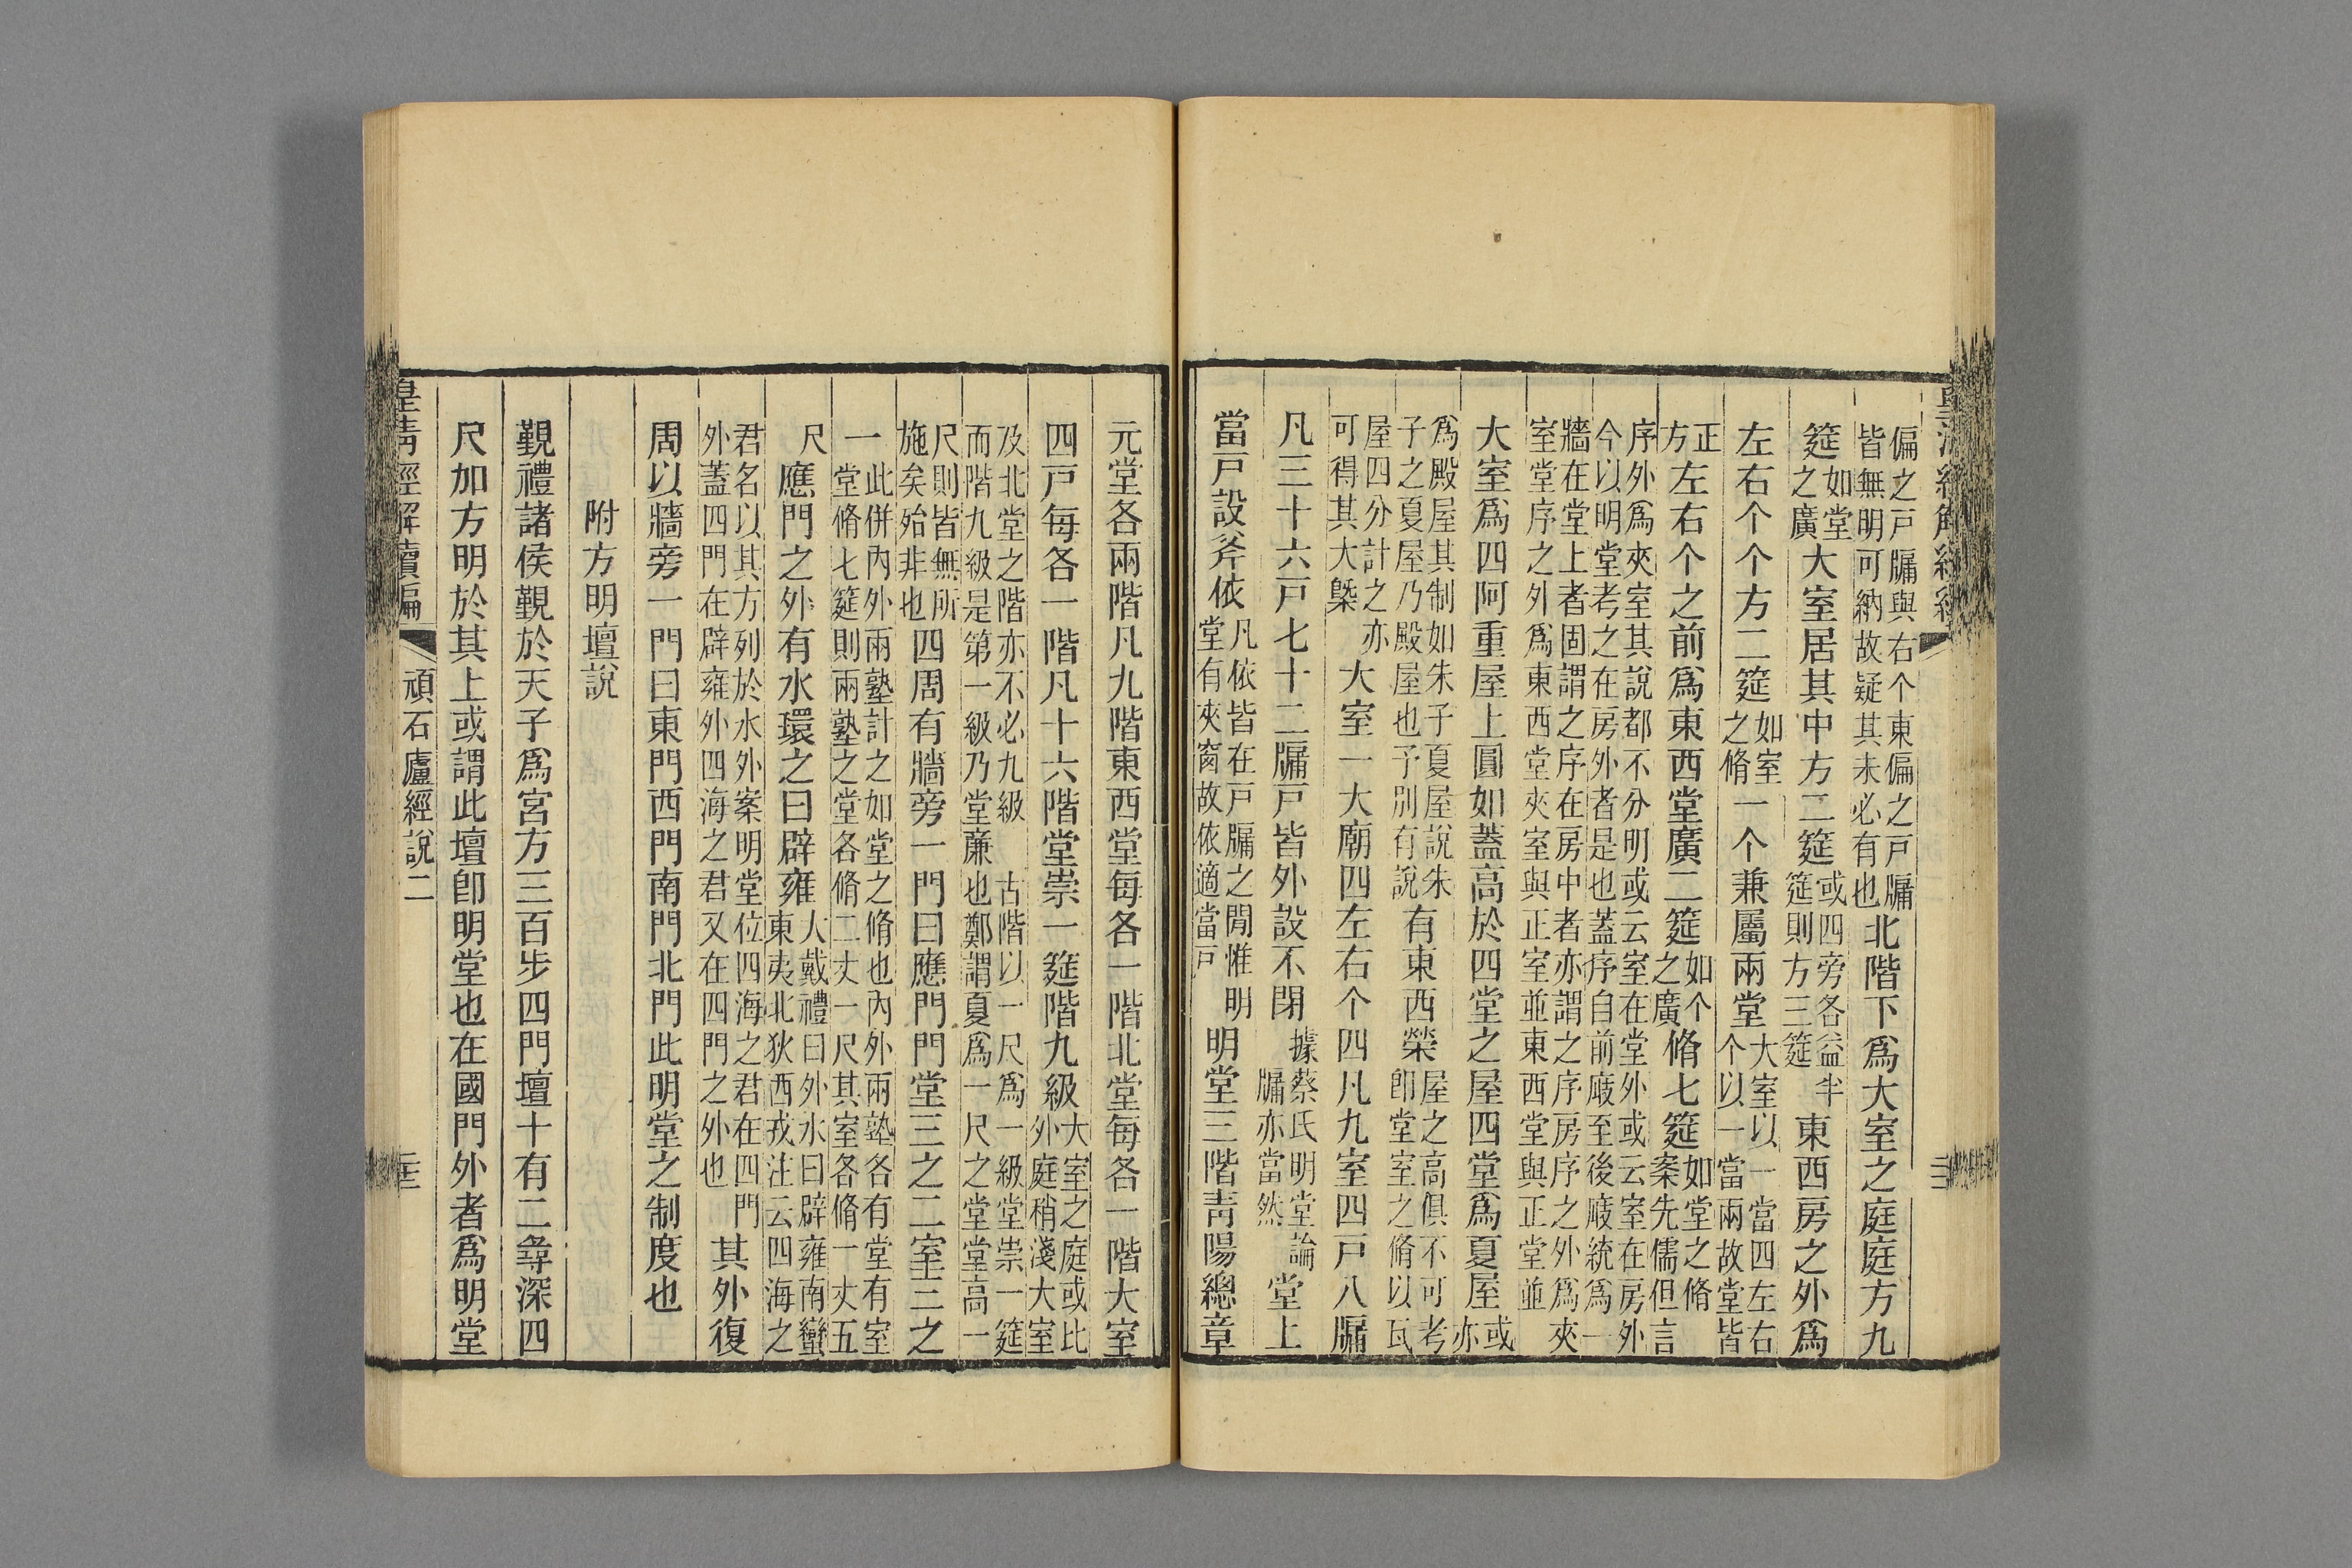 偏之戸牖與右个東偏之戸牖皆無明可納故疑其未必有也北階下爲大室之庭庭方九
筵如堂之廣大室居其中方二筵或四旁各益半筵則方三筵東西房之外爲
左右个个方二筵如室之脩一个兼屬兩堂大室以一當四左右个以一當兩故堂皆
正方左右个之前爲東西堂廣二筵如个之廣脩七筵如堂之脩案先儒但言
序外爲夾室其說都不分明或云室在堂外或云室在房外今以明堂考之在房外者是也蓋序自前廄至後廄統爲一
牆在堂上者固謂之序在房中者亦謂之序房序之外爲夾室堂序之外爲東西堂夾室與正室並東西堂與正堂並
大室爲四阿重屋上圓如蓋高於四堂之屋四堂爲夏屋或亦
爲殿屋其制如朱子夏屋說朱子之夏屋乃殿屋也予別有說有東西榮屋之高俱不可考卽堂室之脩以瓦
屋四分計之亦可得其大槩大室一大廟四左右个四凡九室四戸八牖
凡三十六戸七十二牖戸皆外設不閉據蔡氏明堂論牖亦當然堂上
當戸設斧依凡依皆在戸牖之閒惟明堂有夾窗故依適當戸明堂三階靑陽總章
元堂各兩階凡九階東西堂每各一階北堂每各一階大室
四戸每各一階凡十六階堂崇一筵階九級大室之庭或比外庭稍淺大室
及北堂之階亦不必九級古階以一尺爲一級堂崇一筵而階九級是第一級乃堂廉也鄭謂夏爲一尺之堂堂高一
尺則皆無所施矣殆非也四周有牆旁一門曰應門門堂三之二室三之
一此併內外兩塾計之如堂之脩也內外兩塾各有堂有室堂脩七筵則兩塾之堂各脩二丈一尺其室各脩一丈五
尺應門之外有水環之曰辟雍大戴禮曰外水曰辟雍南蠻東夷北狄西戎注云四海之
君名以其方列於水外案明堂位四海之君在四門外蓋四門在辟雍外四海之君又在四門之外也其外復
周以牆旁一門曰東門西門南門北門此明堂之制度也
附方明壇說
覲禮諸侯覲於天子爲宮方三百步四門壇十有二尋深四
尺加方明於其上或謂此壇卽明堂也在國門外者爲明堂
皇清經解續編 頑石廬經說二